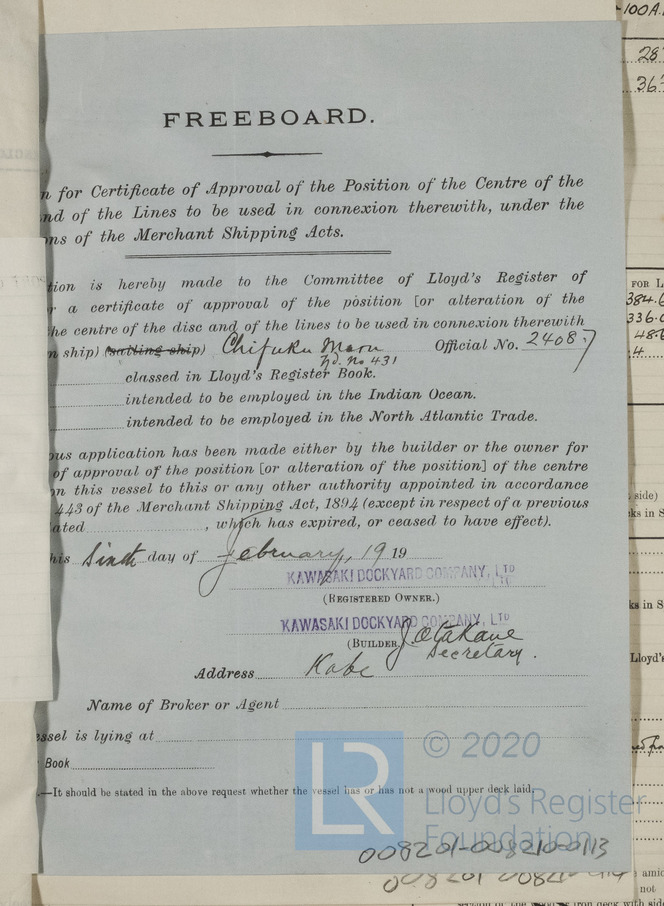 FREEBOARD.
n for Certificate of Approval of the Position of the Centre of the
nd of the Lines to be used in connexion therewith, under the
ns of the Merchant Shipping Acts.
tion is hereby made to the Committee of Lloyd's Register of
r a certificate of approval of the position [or alteration of the
he centre of the disc and of the lines to be used in connexion therewith
n ship) (sailing ship) Chifuku Maru Official No. 24087
Yd. No 431
classed in Lloyd's Register Book.
intended to be employed in the Indian Ocean.
intended to be employed in the North Atlantic Trade.
ous application has been made either by the builder or the owner for
of approval of the position [or alteration of the position] of the centre
on this vessel to this or any other authority appointed in accordance
443 of the Merchant Shipping Act, 1894 (except in respect of a previous
ated , which has expired, or ceased to have effect).
his Sixth day of February, 1919
KAWASAKI DOCKYARD COMPANY, LTD
(REGISTERED OWNER.)
KAWASAKI DOCKYARD COMPANY, LTD
(BUILDER.
J. Otakane
Secretary.
Address Kobe
Name of Broker or Agent
essel is lying at
Book
.—It should be stated in the above request whether the vessel has or has not a wood upper deck laid.
© 2020
Lloyd's Register
Foundation
008201-008210-0113
LR
100A
28
36
FOR L
384.6
336.0
48.6
.4
side)
ks in S
ks in S
Lloyd's
amid
not